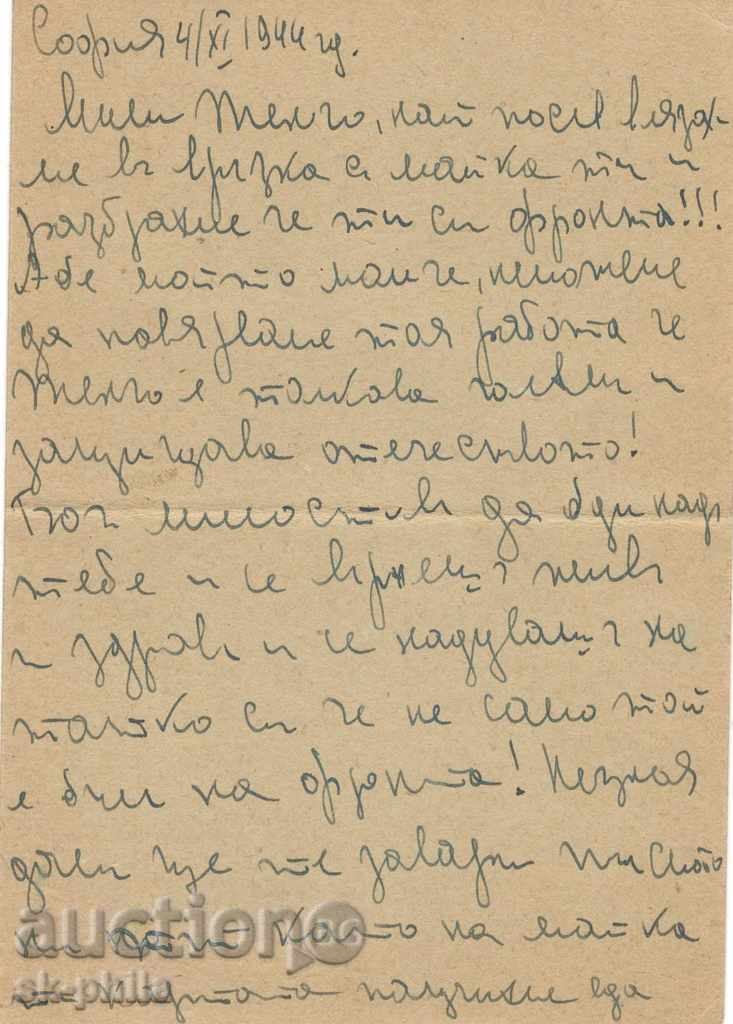 София 4/XI 1944 гд.
Мили Женчо, най после влязох-
ме въ връзка с майка ти и
разбрахме че ти си фронта!!!
Абе мойто момче, неможене
да повярваме тая работа че
Женчо е толкова големъ и
защищава отечеството!
Богъ милостивъ да бди надъ
тебе и се върнешъ живъ
и здравъ и се надувашъ на
татко си че не само той
е билъ на фронта! Незная
дали ще те завари писмото
ни като на майка
ти картата получихме едва
auction.bg
sk-phila